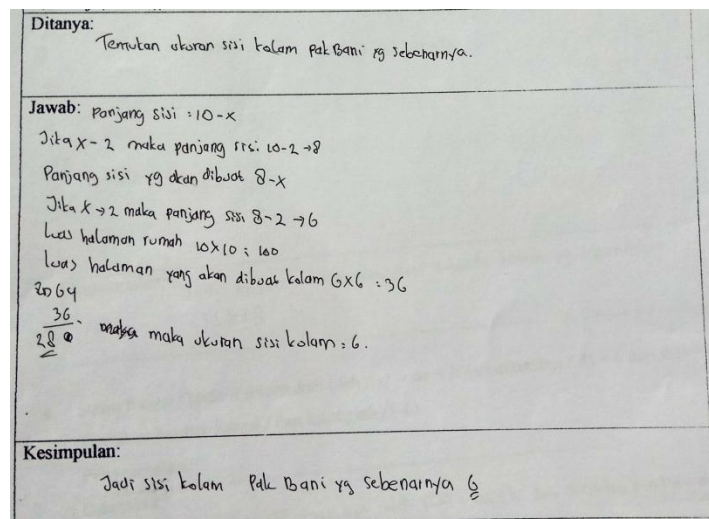 Ditanya:
Temukan ukuran sisi kolam pak Bani yg sebenarnya.
Jawab: Panjang sisi : 10-x
Jika x-2 maka panjang sisi 10-2 →8
Panjang sisi yg akan dibuat 8-x
Jika x→2 maka panjang sisi 8-2 →6
Luas halaman rumah 10x10 : 100
luas halaman yang akan dibuat kolam 6x6 : 36
64
36
28 maka ukuran sisi kolam : 6.
Kesimpulan:
Jadi sisi kolam Pak Bani yg sebenarnya 6